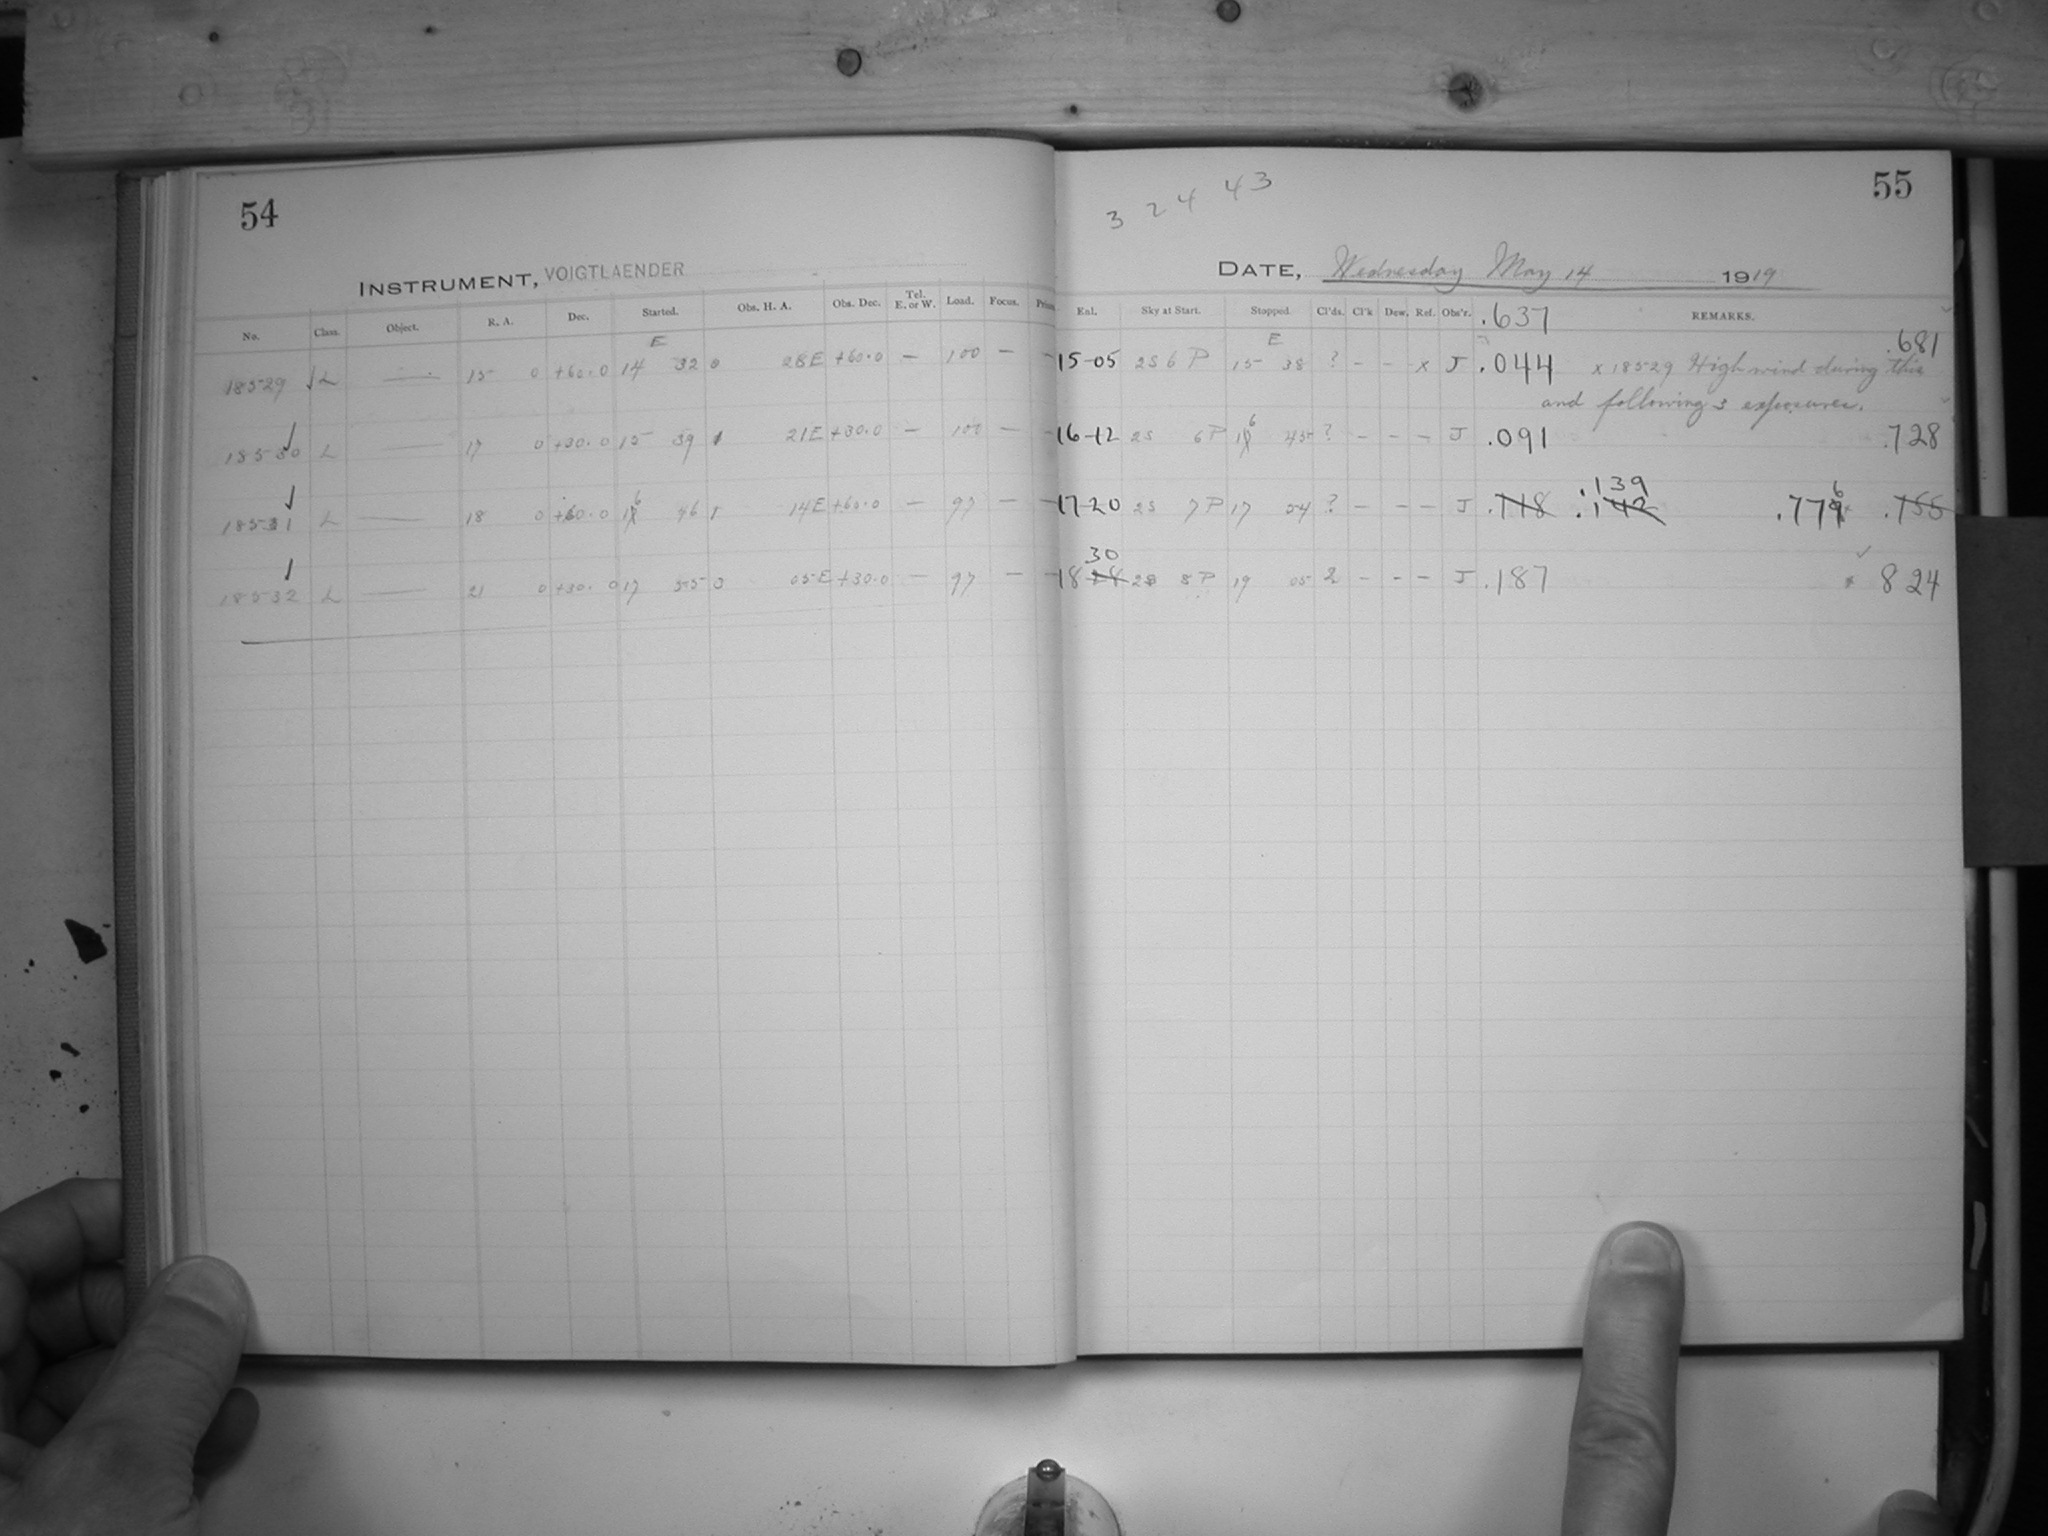 54
INSTRUMENT, VOIGTLAENDER
No. Class. Object. R. A. Dec. Started. Obs. H. A. Obs. Dec. Tel. E. or W. Load. Focus.
E
18529 √ L — 15 0 +60.0 14 32 0 28E +60.0 — 100 — -
√
18530 L — 17 0 +30.0 15 39 1 21E +30.0 — 100 — -
√
18531 L — 18 0 +60.0 16 46 1 14E +60.0 — 97 — -
√
18532 L — 21 0 +30.0 17 55 0 05E +30.0 — 97 — -
3 24 43
55
DATE, Wednesday May 14 1919
Enl. Sky at Start. Stopped Cl'ds. Cl'k Dew. Ref. Obs'r. .637 REMARKS.
E .681
15-05 2S 6 P 15 38 ? - - x J .044 x 18529 High wind during this
and following 3 exposures.
16-12 2S 6 P 16 45 ? - - - J .091 .728
.139 6
17-20 2S 7 P 17 54 ? - - - J .118 .142 .779 .755
30
18 28 2S 8 P 19 05 2 - - - J .187 824